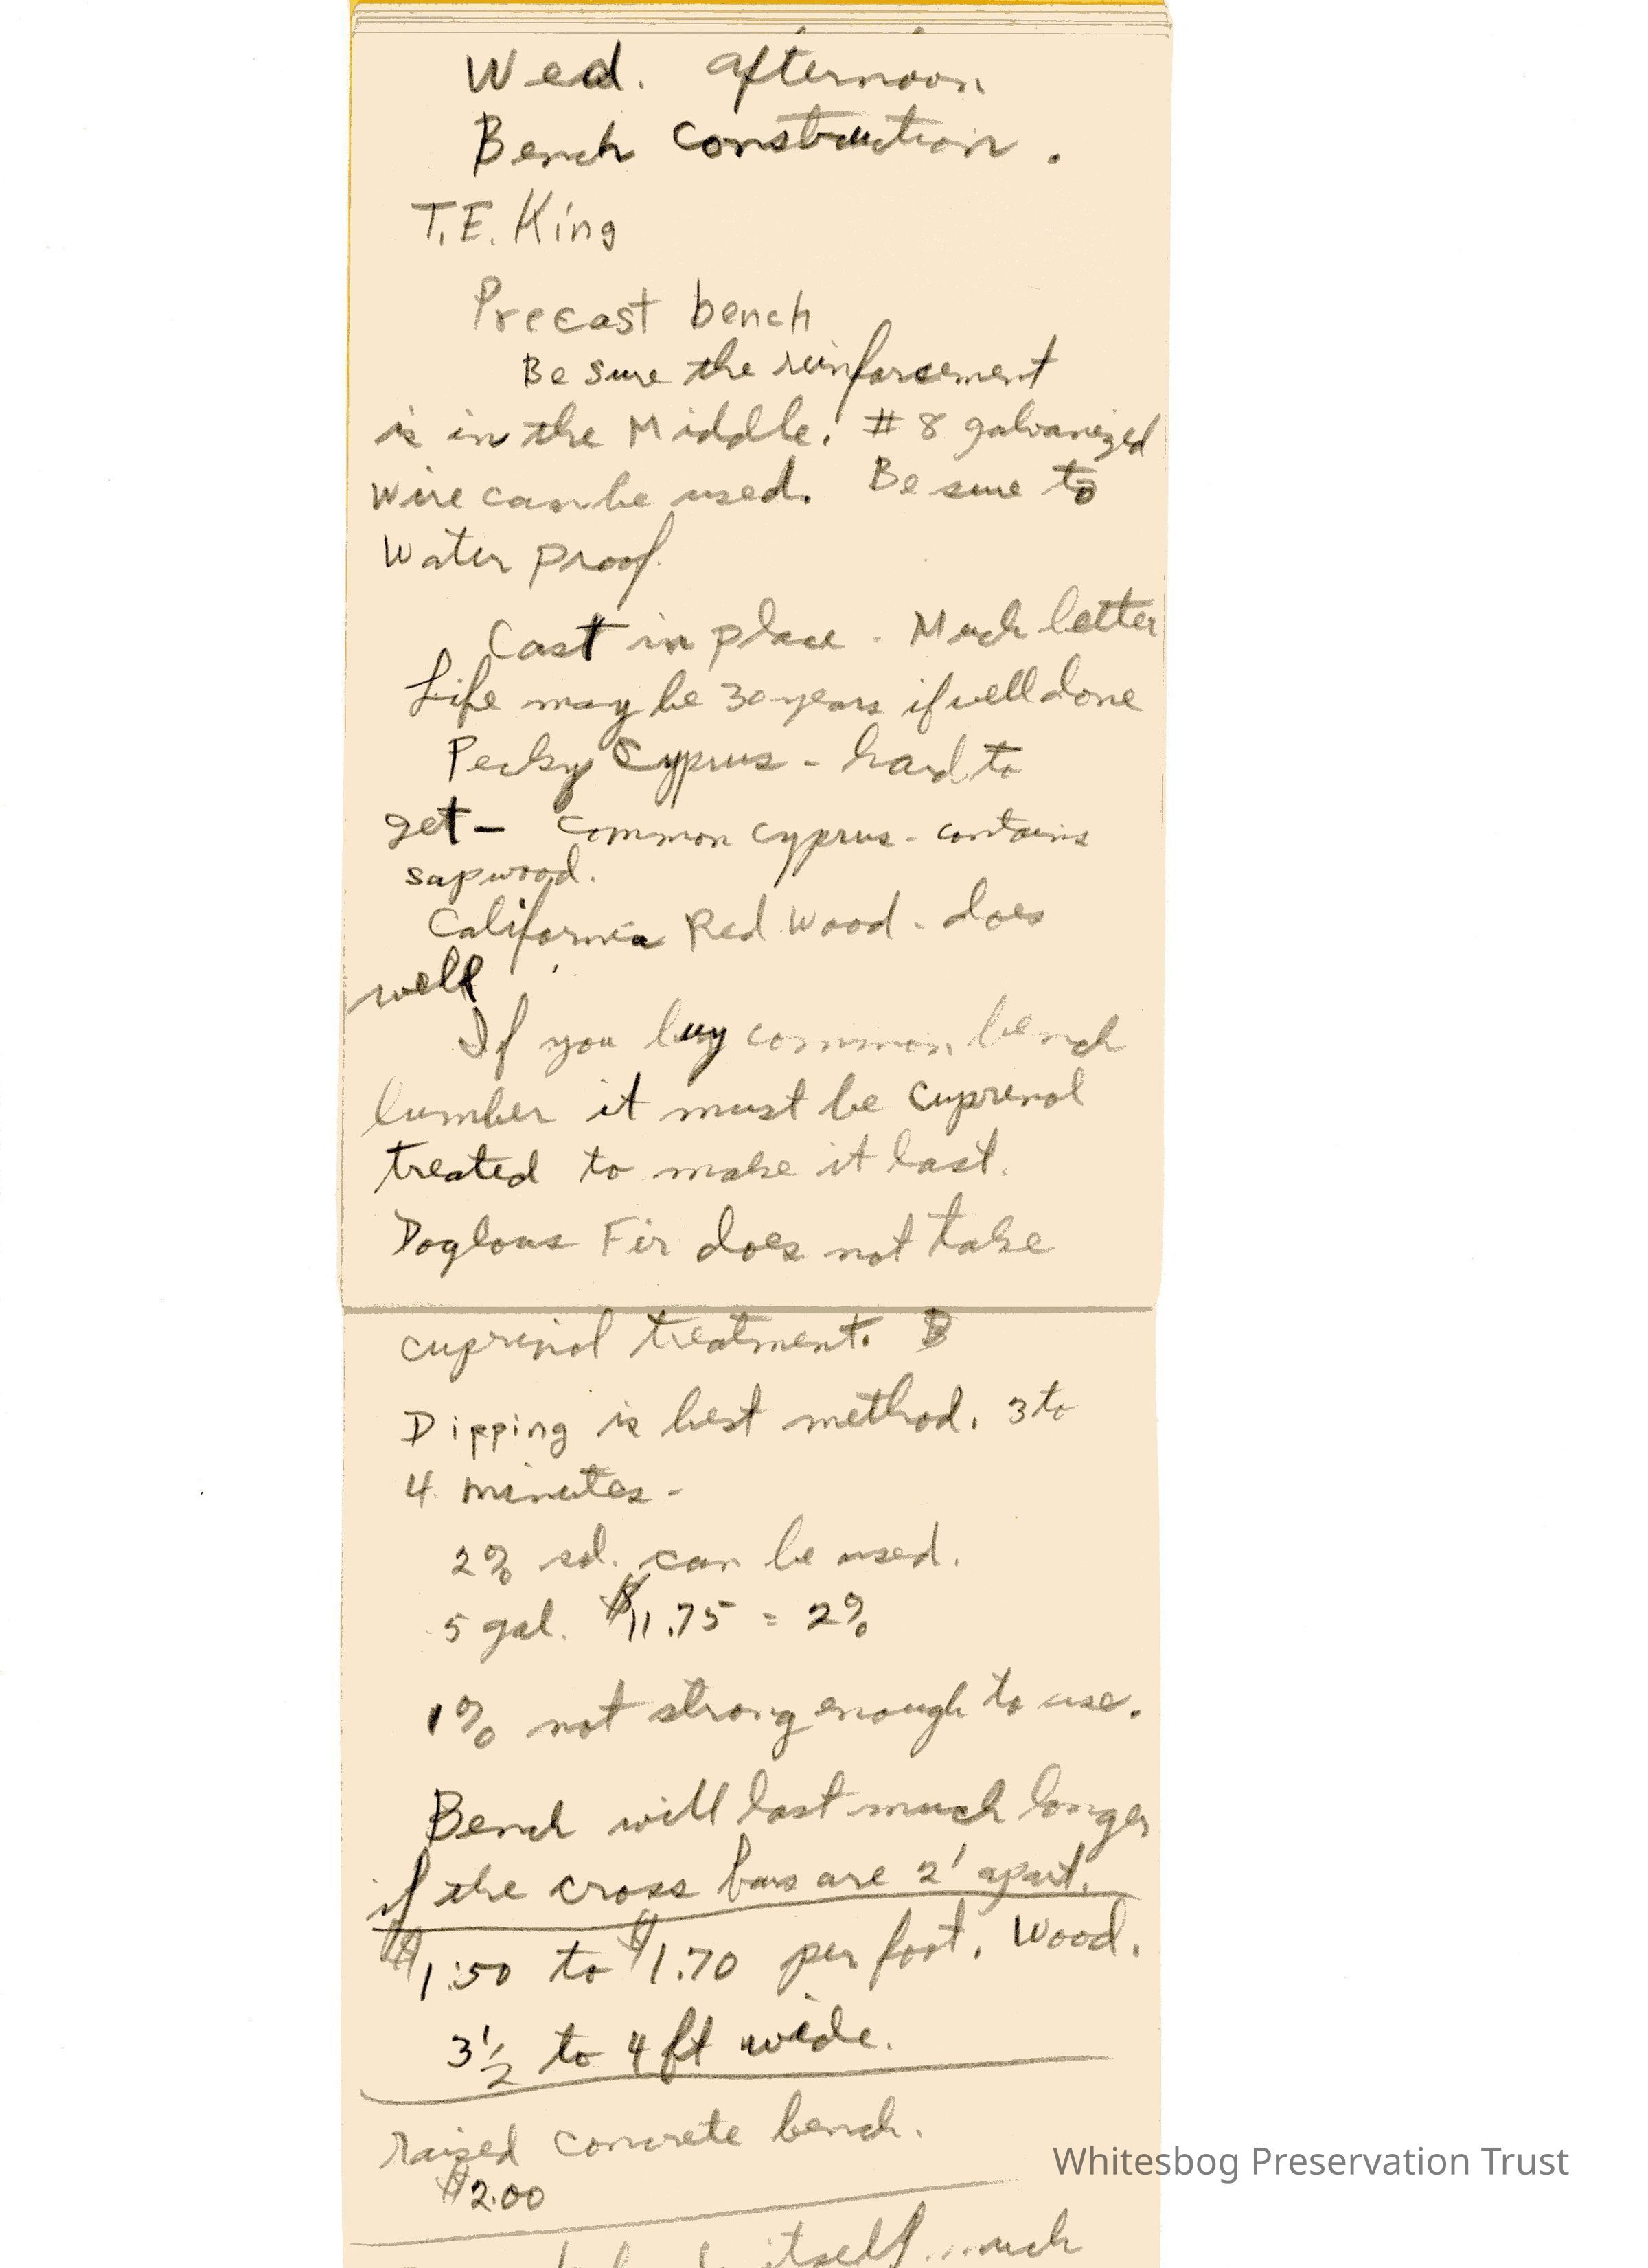 Wed. afternoon
Bench Construction.
T.E. King
Precast bench
Be sure the reinforcement
is in the Middle. #8 galvanized
wire can be used. Be sure to
Water proof.
Cast in place - Much better
Life may be 30 years if well done
Pecky Cyprus - hard to
get - common cyprus - contains
sapwood.
California Red Wood - does
well
If you buy common bench
lumber it must be Cuprenol
treated to make it last.
Doglous Fir does not take
cuprinol treatment. B
Dipping is best method. 3 to
4 minutes -
2% sol. can be used.
5 gal. $11.75 = 2%
1% not strong enough to use.
Bench will last much longer
if the cross bars are 2' apart.
$1.50 to $1.70 per foot. Wood.
3 1/2 to 4 ft wide.
raised concrete bench.
$2.00
itself
Whitesbog Preservation Trust